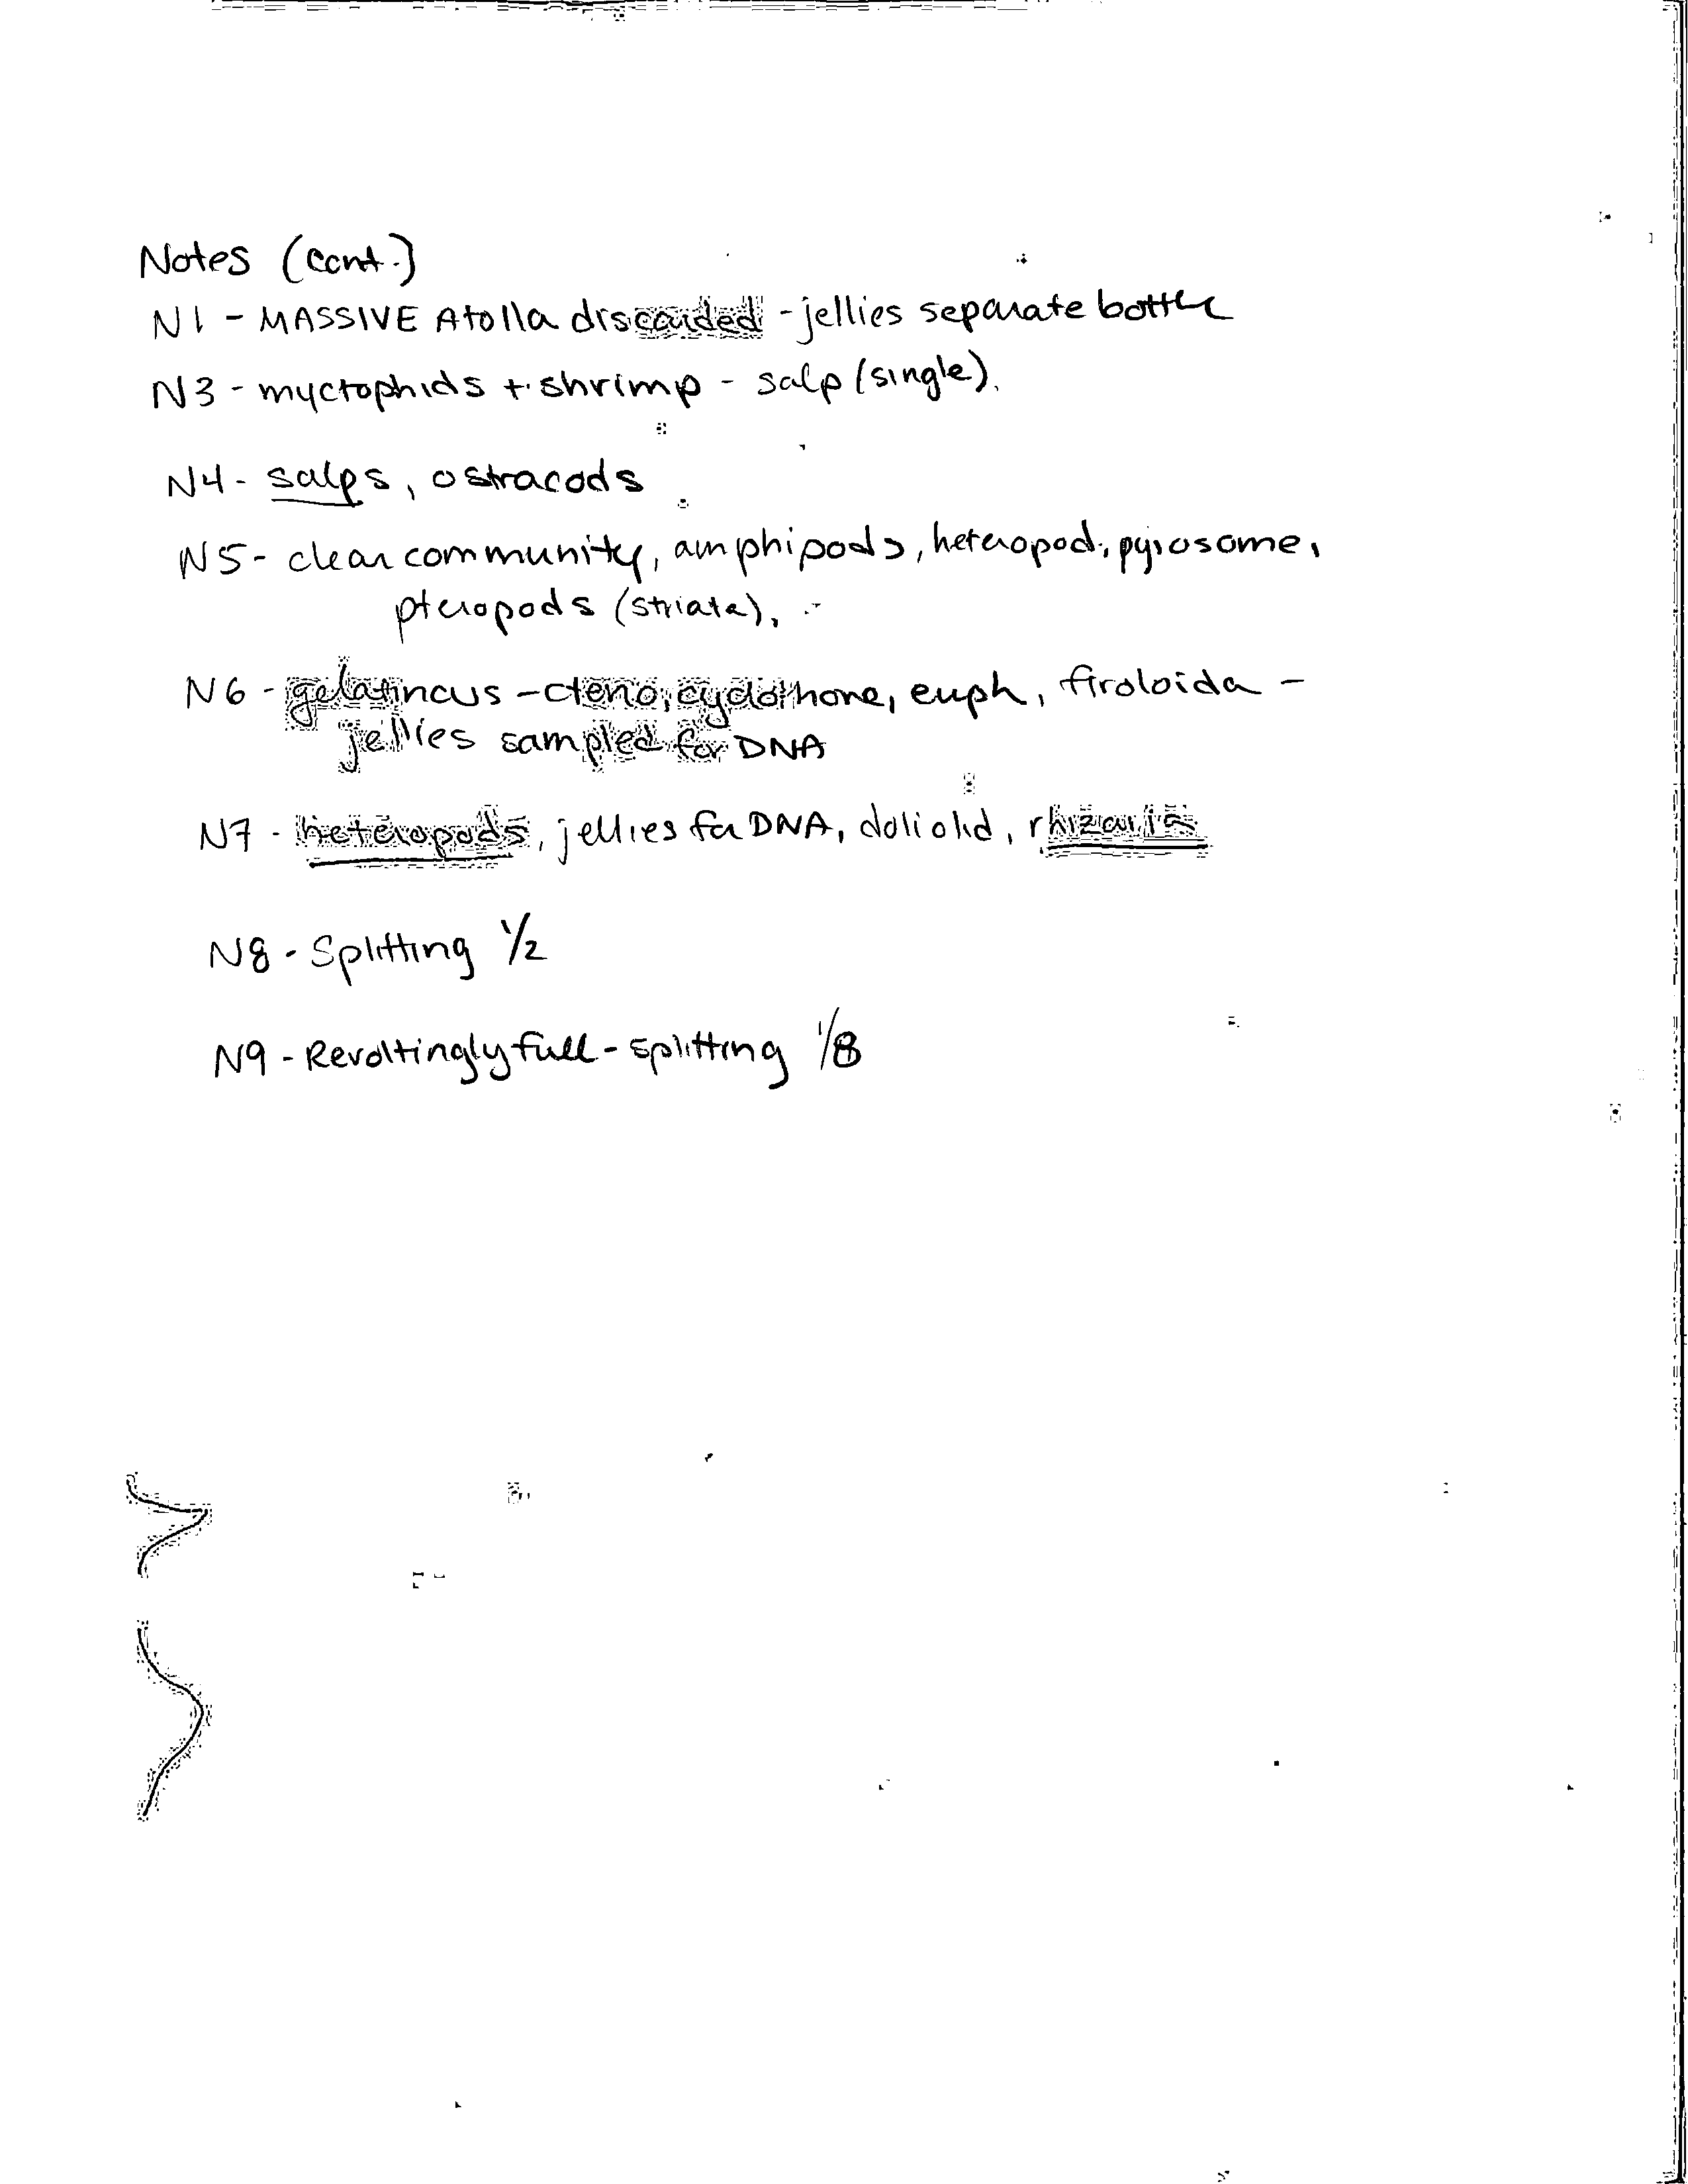 Notes (cont.)
N1 - MASSIVE Atolla discarded - jellies separate bottle
N3 - myctophids + shrimp - salp (single).
N4 - salps, ostracods
N5 - clear community, amphipods, heteropod, pyrosome,
pteropods (striata),
N6 - gelatinous - cteno, cyclothone, euph, firoloida -
jellies sampled for DNA
N7 - heteropods, jellies for DNA, doliolid, rhizaria
N8 - Splitting 1/2
N9 - Revoltingly full - splitting 1/8